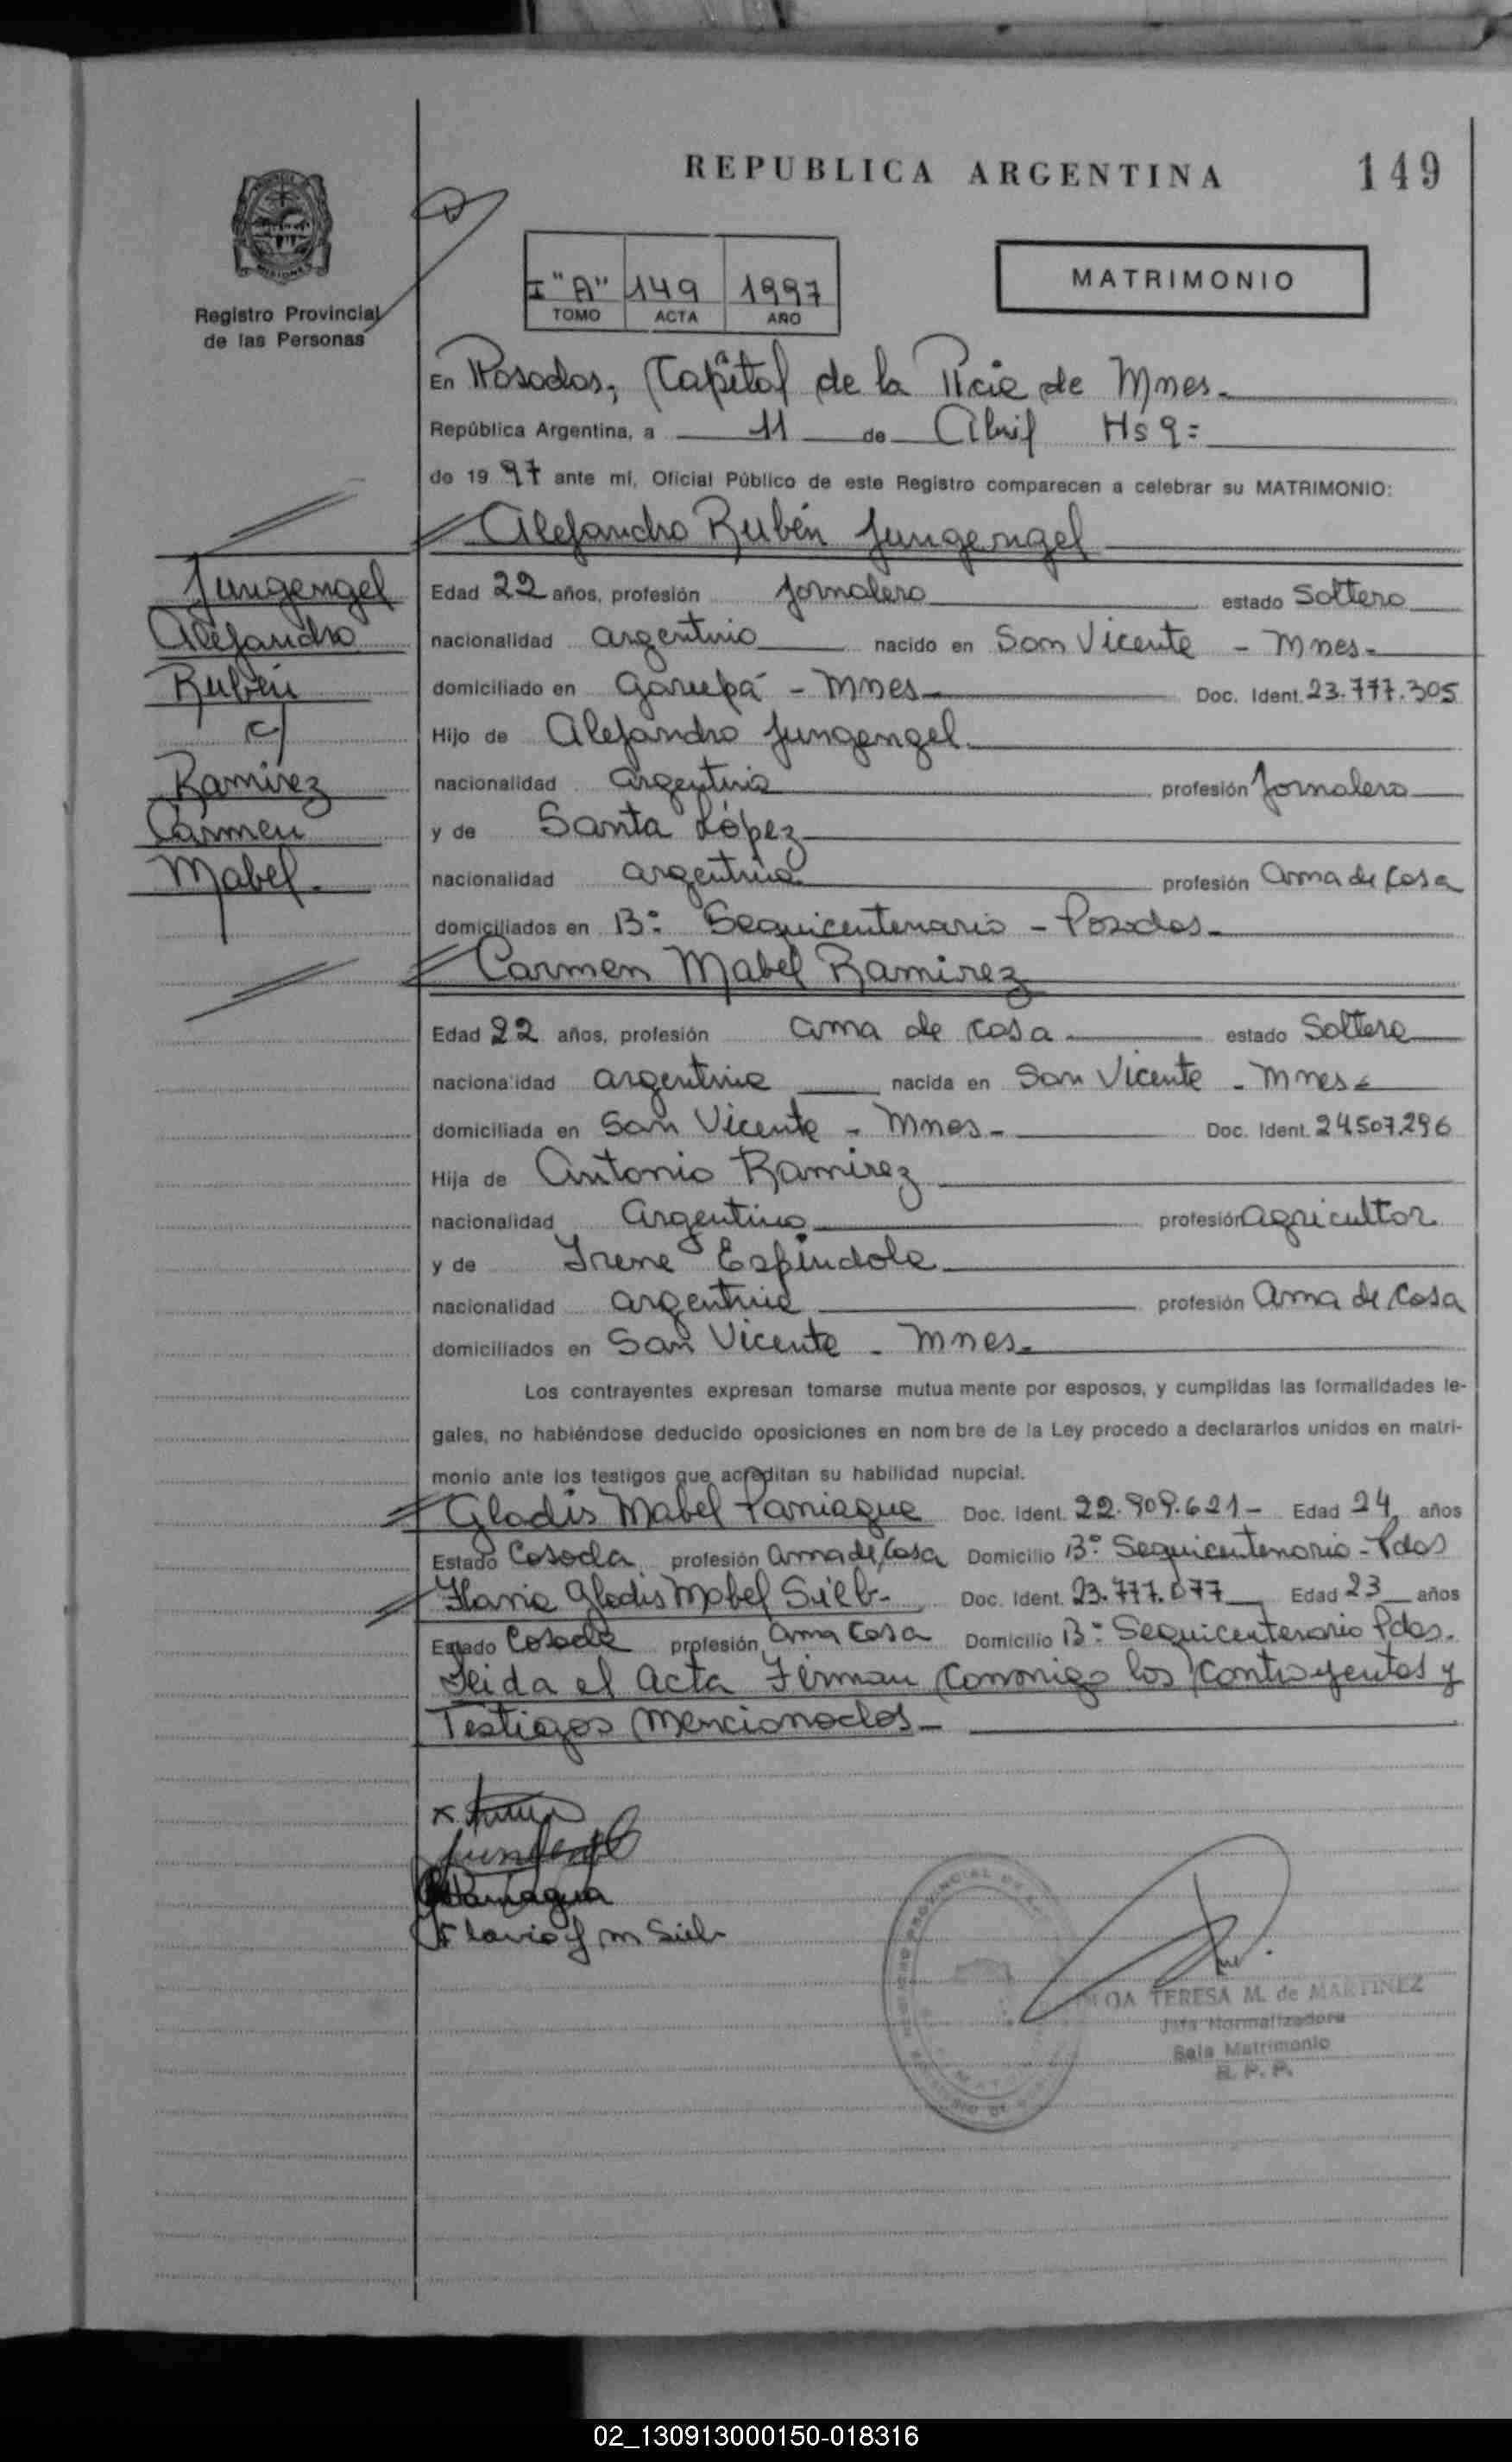 REPUBLICA ARGENTINA
149
MISIONES
Registro Provincial
de las Personas
I "A" 149 1997
TOMO ACTA AÑO
MATRIMONIO
En Posadas, Capital de la Pcia de Mnes.
República Argentina, a 11 de Abril Hs 9=
de 1997 ante mí, Oficial Público de este Registro comparecen a celebrar su MATRIMONIO:
Alejandro Rubén Jungengel
Jungengel
Alejandro
Rubén
c/
Ramirez
Carmen
Mabel.
Edad 22 años, profesión Jornalero estado Soltero
nacionalidad argentino nacido en San Vicente - Mnes-
domiciliado en Garupá - Mnes Doc. Ident. 23.777.305
Hijo de Alejandro Jungengel.
nacionalidad argentina profesión Jornalero
y de Santa López
nacionalidad argentina profesión ama de casa
domiciliados en B=° Sequicentenario - Posadas-
Carmen Mabel Ramirez
Edad 22 años, profesión ama de casa estado Soltera
nacionalidad argentina nacida en San Vicente - Mnes=
domiciliada en San Vicente - Mnes- Doc. Ident. 24.507.296
Hija de Antonio Ramirez
nacionalidad Argentino profesión agricultor
y de Irene Espíndola
nacionalidad argentina profesión ama de casa
domiciliados en San Vicente - Mnes-
Los contrayentes expresan tomarse mutua mente por esposos, y cumplidas las formalidades le-
gales, no habiéndose deducido oposiciones en nom bre de la Ley procedo a declararlos unidos en matri-
monio ante los testigos que acreditan su habilidad nupcial.
Gladis Mabel Paniagua Doc. Ident. 22.909.621- Edad 24 años
Estado Casada profesión ama de casa Domicilio B=° Sequicentenario - Pdas
Flavia Gladis Mabel Sieb- Doc. Ident. 23.777.077 Edad 23 años
Estado Casada profesión ama casa Domicilio B=° Sequicentenario Pdas.
Leida el acta Firman conmigo los contrayentes y
Testigos mencionados-
Paniagua
Flavia g m Sieb
TERESA M. de MARTINEZ
Jefa Normalizadora
Sala Matrimonio
R. P. P.
02_130913000150-018316